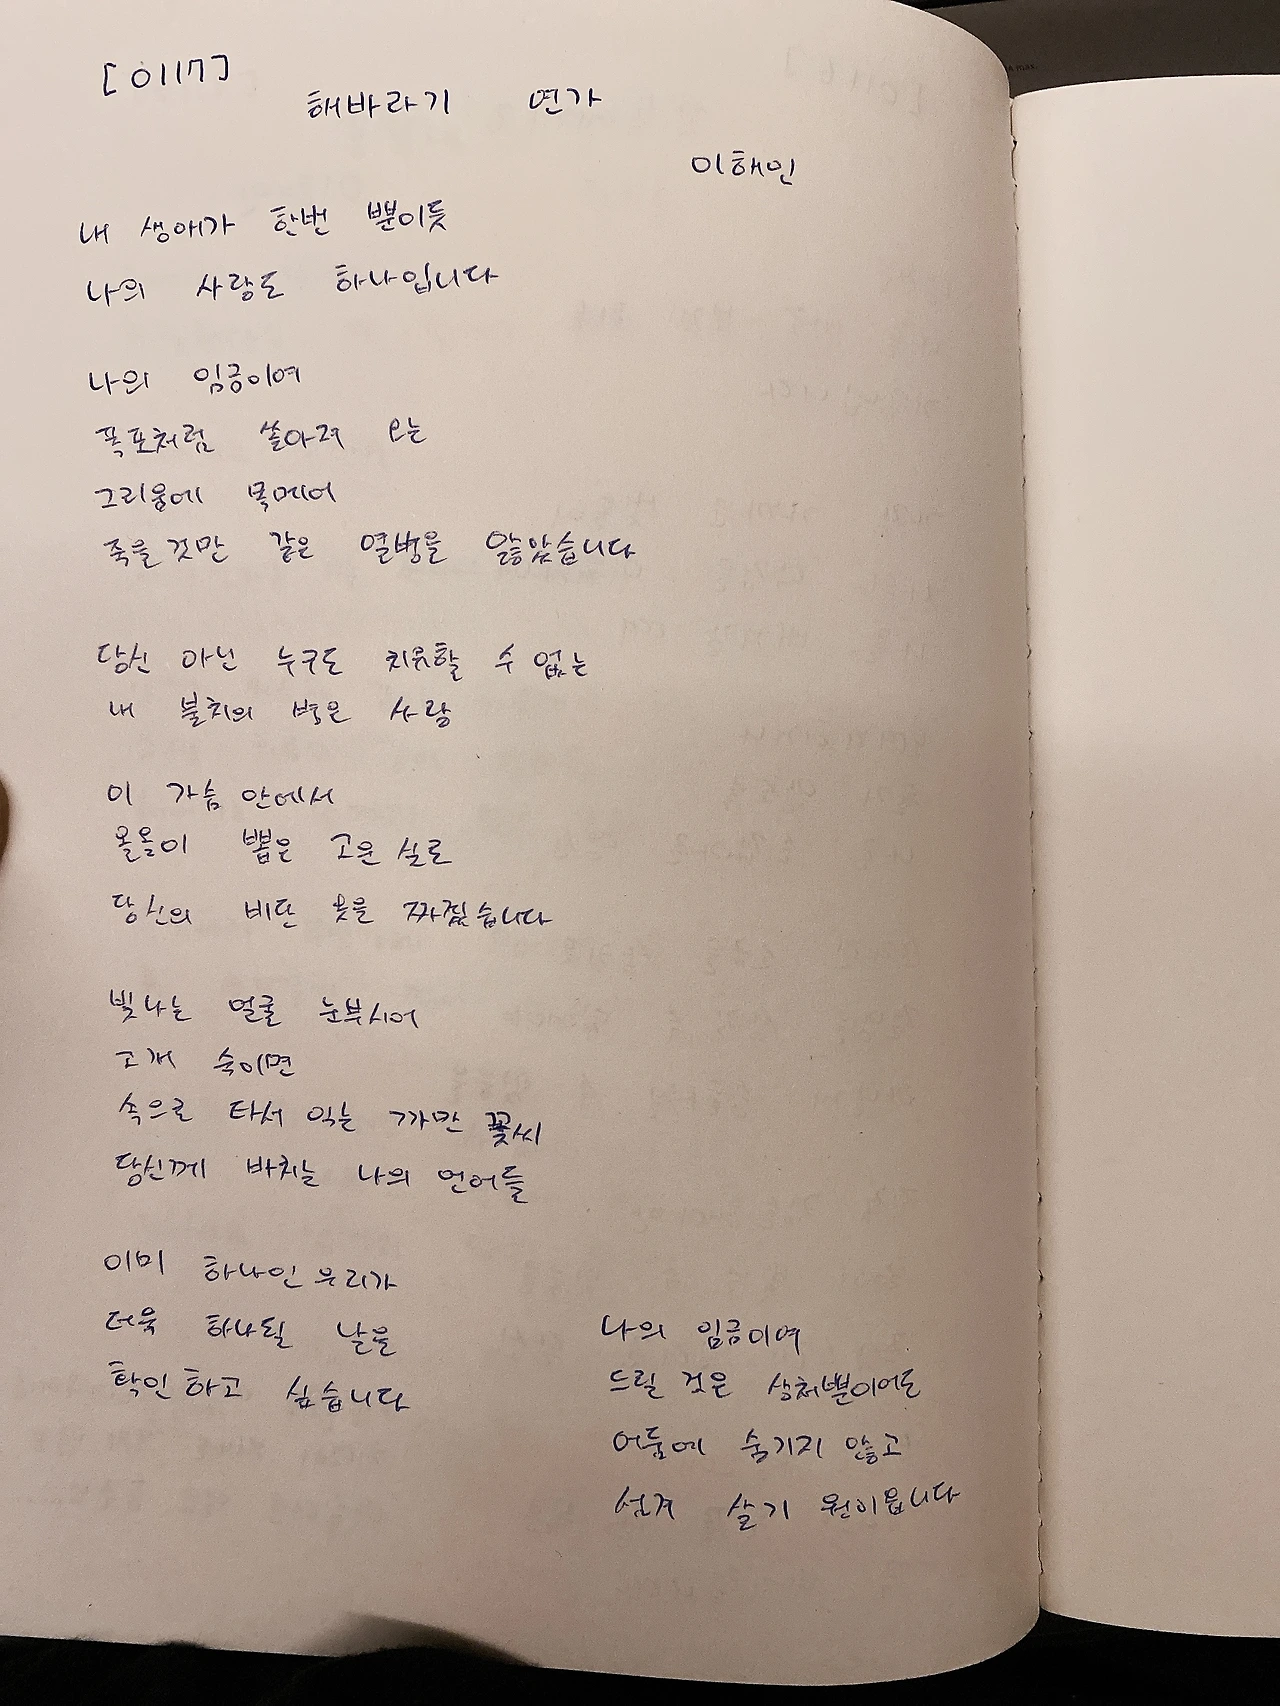 [0117]
해바라기 연가
이해인
내 생애가 한번 뿐이듯
나의 사랑도 하나입니다
나의 임금이여
폭포처럼 쏟아려 오는
그리움에 목메어
죽을것만 같은 열병을 앓았습니다
당신 아닌 누구도 치유할 수 없는
내 불치의 병은 사랑
이 가슴 안에서
올올이 뽑은 고운 실로
당신의 비단 옷을 짜겠습니다
빛나는 얼굴 눈부시어
고개 숙이면
속으로 타서 익는 까만 꽃씨
당신께 바치는 나의 언어들
이미 하나인 우리가
더욱 하나될 날을
확인하고 싶습니다
나의 임금이여
드릴 것은 상처뿐이어도
어둠에 숨기지 않고
섬겨 살기 원이옵니다